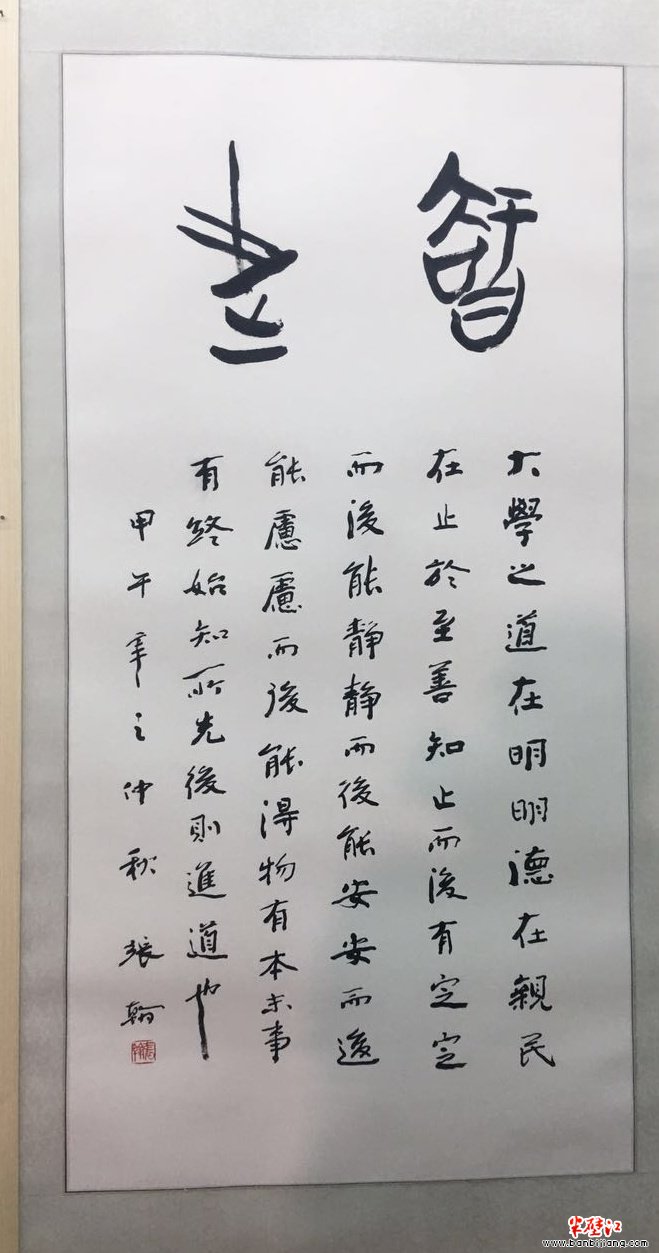 智
大學之道在明明德在親民
在止於至善知止而後有定定
而後能靜靜而後能安安而後
能慮慮而後能得物有本末事
有終始知所先後則進道也
甲午年之仲秋 張翰
半壁江
www.banbijiang.com